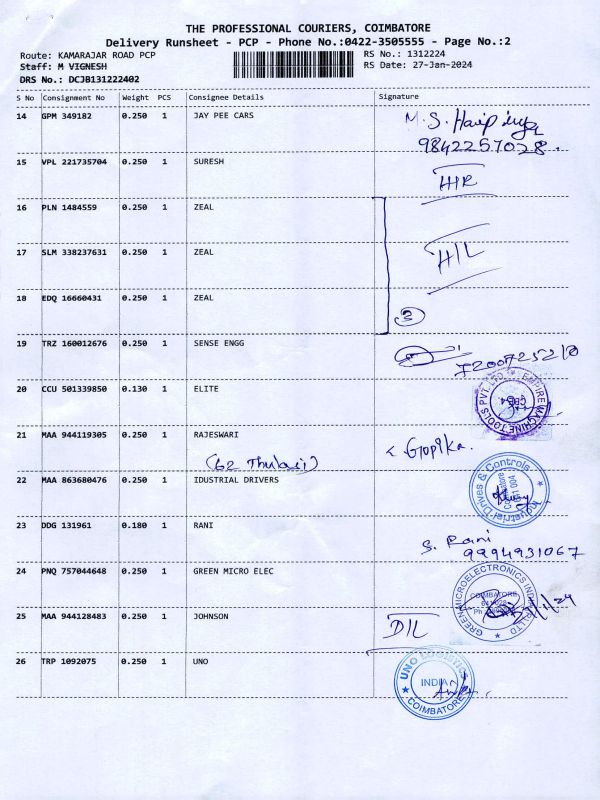 THE PROFESSIONAL COURIERS, COIMBATORE
Delivery Runsheet - PCP - Phone No.:0422-3505555 - Page No.:2
Route: KAMARAJAR ROAD PCP RS No.: 1312224
Staff: M VIGNESH RS Date: 27-Jan-2024
DRS No.: DCJB131222402
S No Consignment No Weight PCS Consignee Details Signature
14 GPM 349182 0.250 1 JAY PEE CARS M. S.
9842257028.
15 VPL 221735704 0.250 1 SURESH
16 PLN 1484559 0.250 1 ZEAL
17 SLM 338237631 0.250 1 ZEAL H/L
18 EDQ 16660431 0.250 1 ZEAL
3
19 TRZ 160012676 0.250 1 SENSE ENGG
20 CCU 501339850 0.130 1 ELITE
EMPIRE MACHINE TOOLS PVT. LTD.
21 MAA 944119305 0.250 1 RAJESWARI Gopika.
(G2 Thulasi)
22 MAA 863680476 0.250 1 IDUSTRIAL DRIVERS
Industrial Drives & Controls
23 DDG 131961 0.180 1 RANI S. Rani
9994931067
24 PNQ 757044648 0.250 1 GREEN MICRO ELEC
GREEN MICROELECTRONICS INDIA (P) LTD
COIMBATORE
25 MAA 944128483 0.250 1 JOHNSON D/L
26 TRP 1092075 0.250 1 UNO
UNO LOGISTICS
INDIA
COIMBATORE